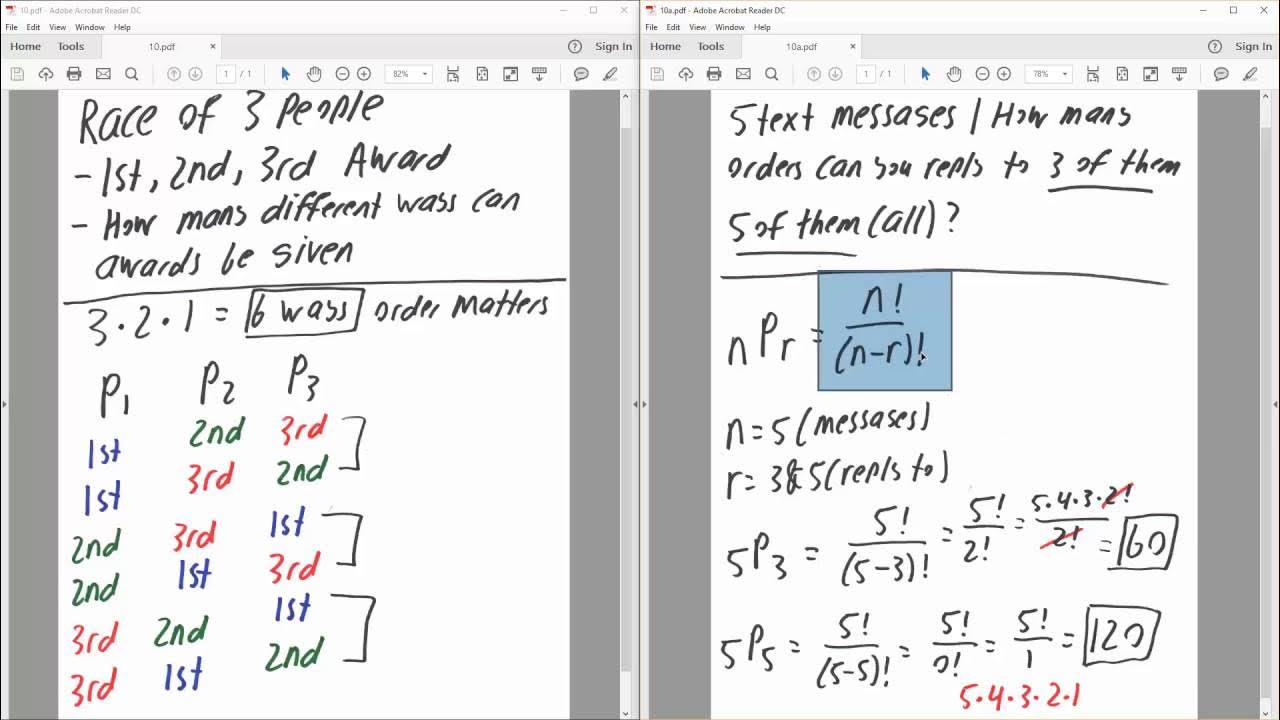 10.pdf - Adobe Acrobat Reader DC
File Edit View Window Help
Home Tools 10.pdf × Sign In
1 / 1 82%
Race of 3 People
- 1st, 2nd, 3rd Award
- How many different ways can
awards be given
3·2·1 = 6 ways order matters
P1 P2 P3
1st 2nd 3rd
1st 3rd 2nd
2nd 3rd 1st
2nd 1st 3rd
3rd 2nd 1st
3rd 1st 2nd
10a.pdf - Adobe Acrobat Reader DC
File Edit View Window Help
Home Tools 10a.pdf × Sign In
1 / 1 78%
5 text messages / How many
orders can you reply to 3 of them
5 of them (all)?
nPr = n!/(n-r)!
n = 5 (messages)
r = 3 & 5 (reply to)
5P3 = 5!/(5-3)! = 5!/2! = 5·4·3·2!/2! = 60
5P5 = 5!/(5-5)! = 5!/0! = 5!/1 = 120
5·4·3·2·1